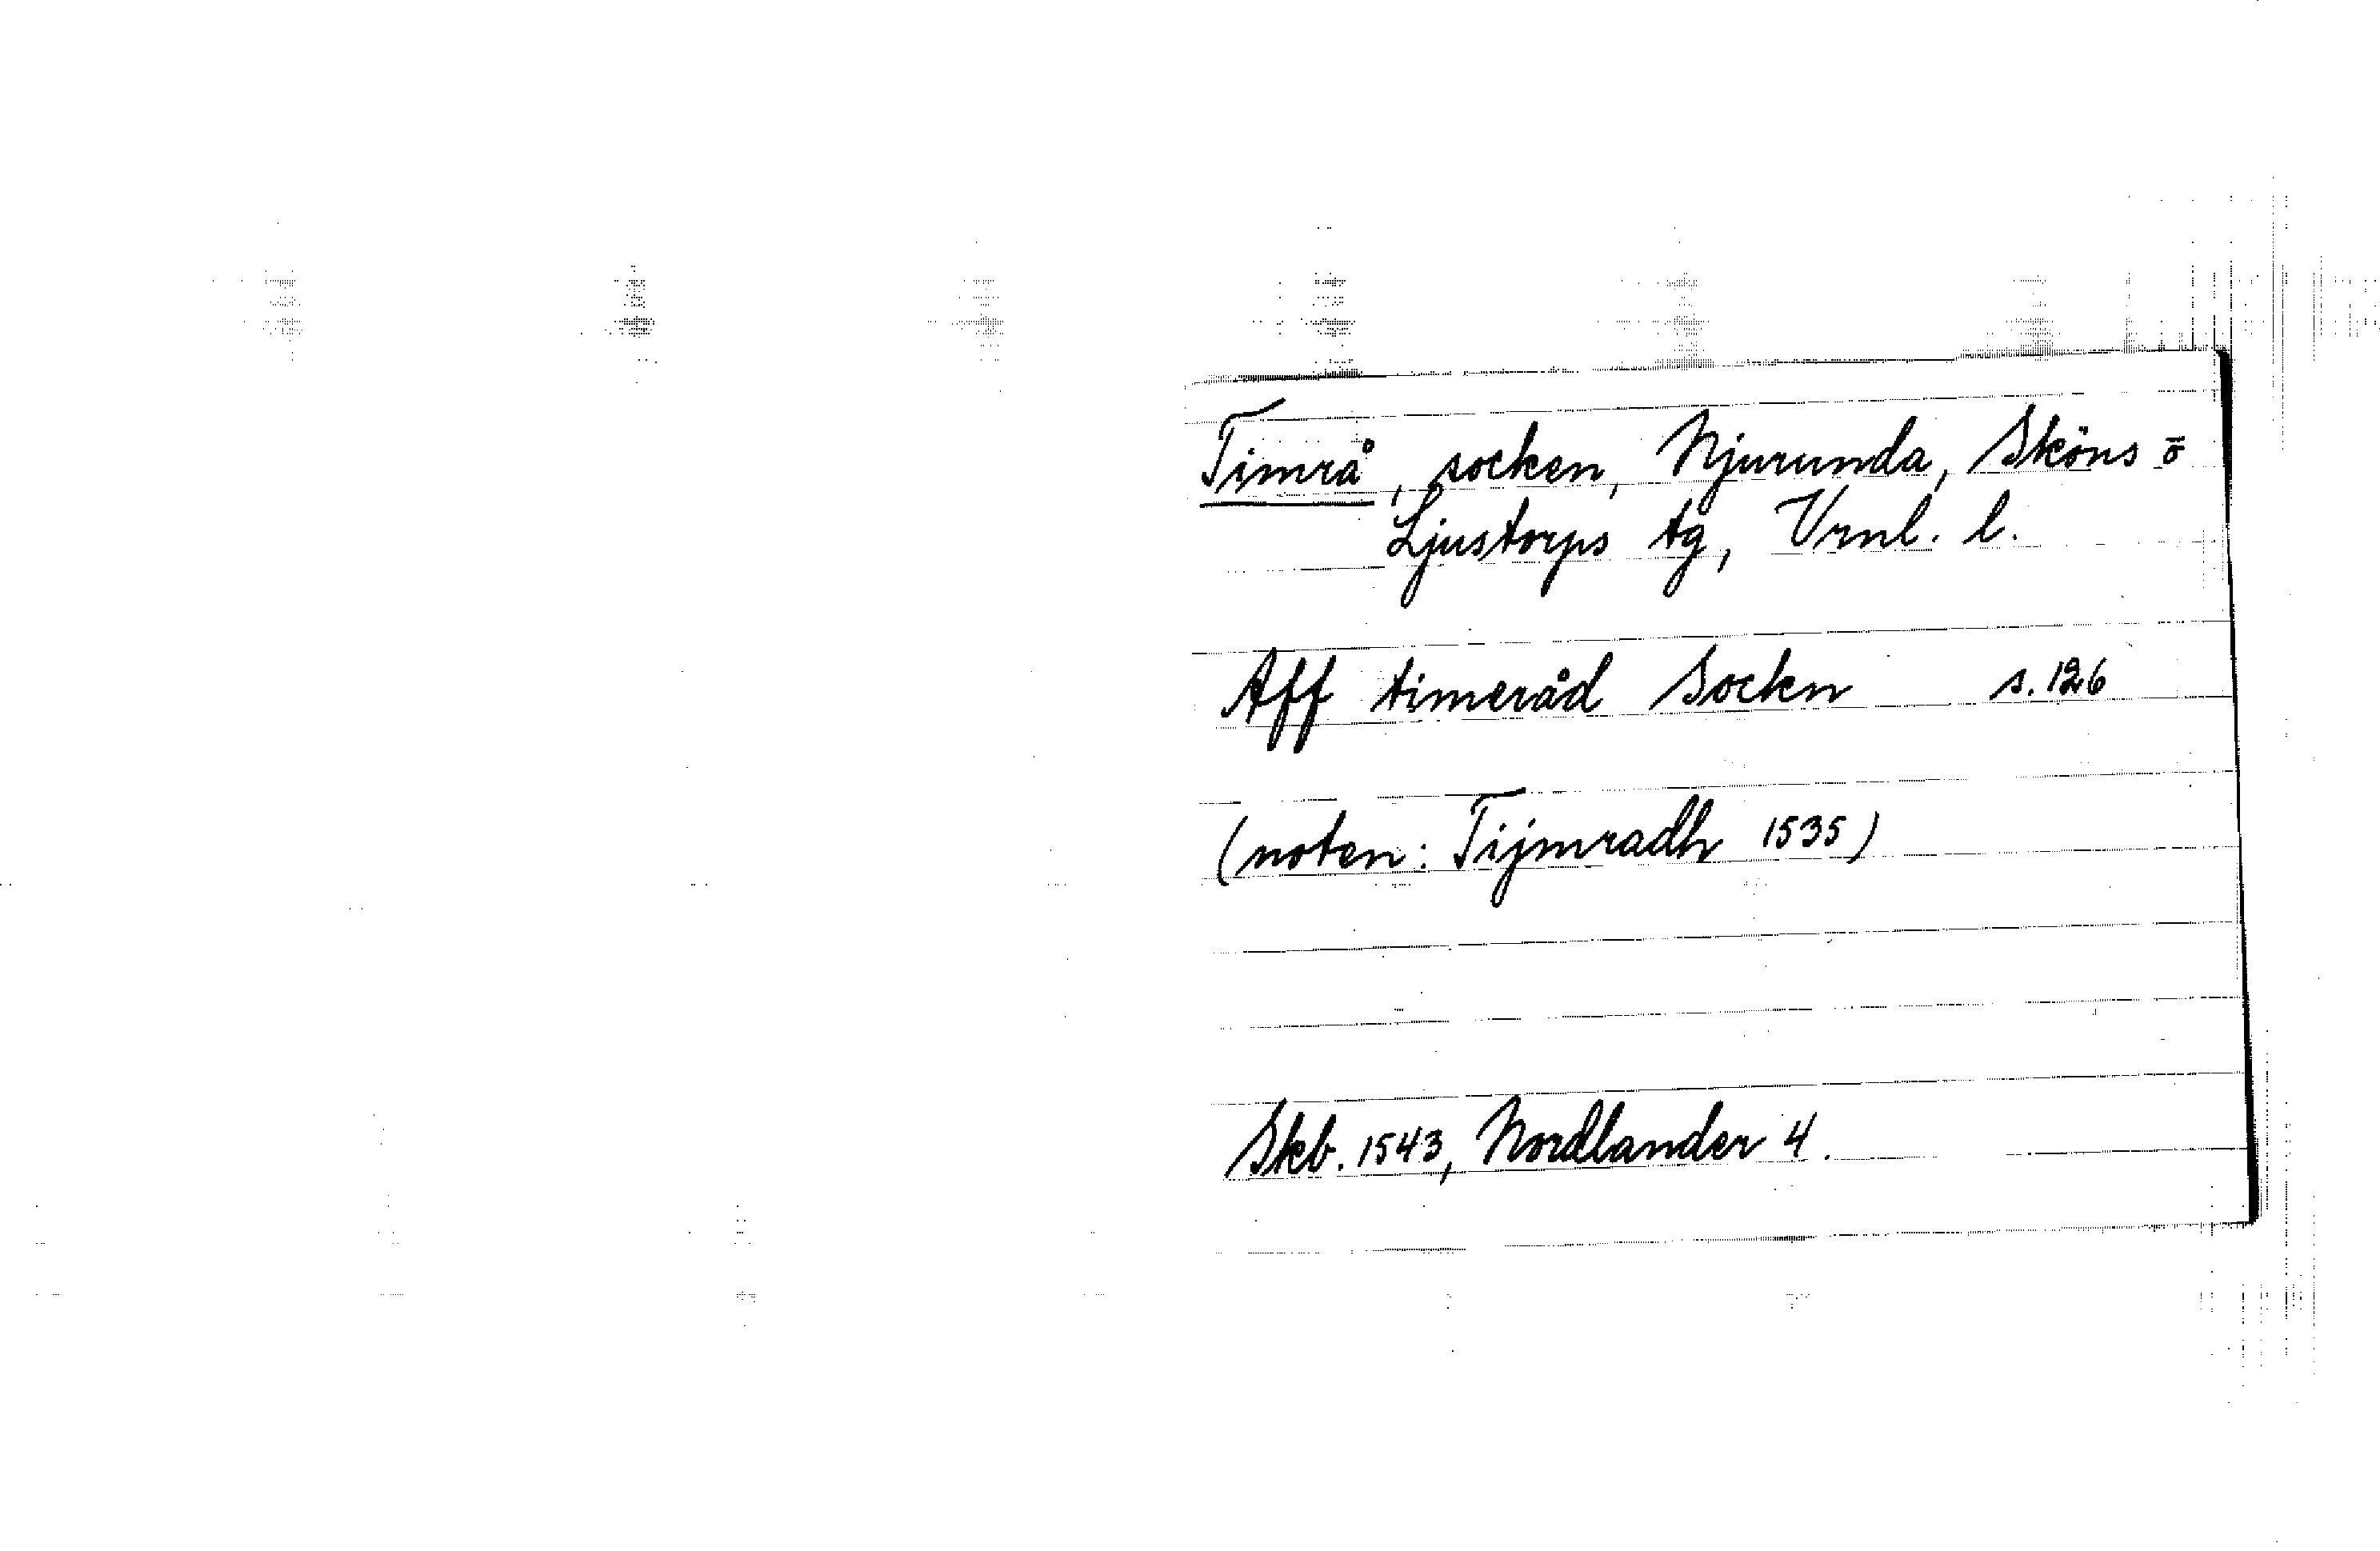 Timrå, socken, Njurunda, Sköns o
Ljustorps tg, Vrnl. l.
Aff timeråd Sockn s. 126
(noten: Tijmradh 1535)
Skb. 1543, Nordlander 4.